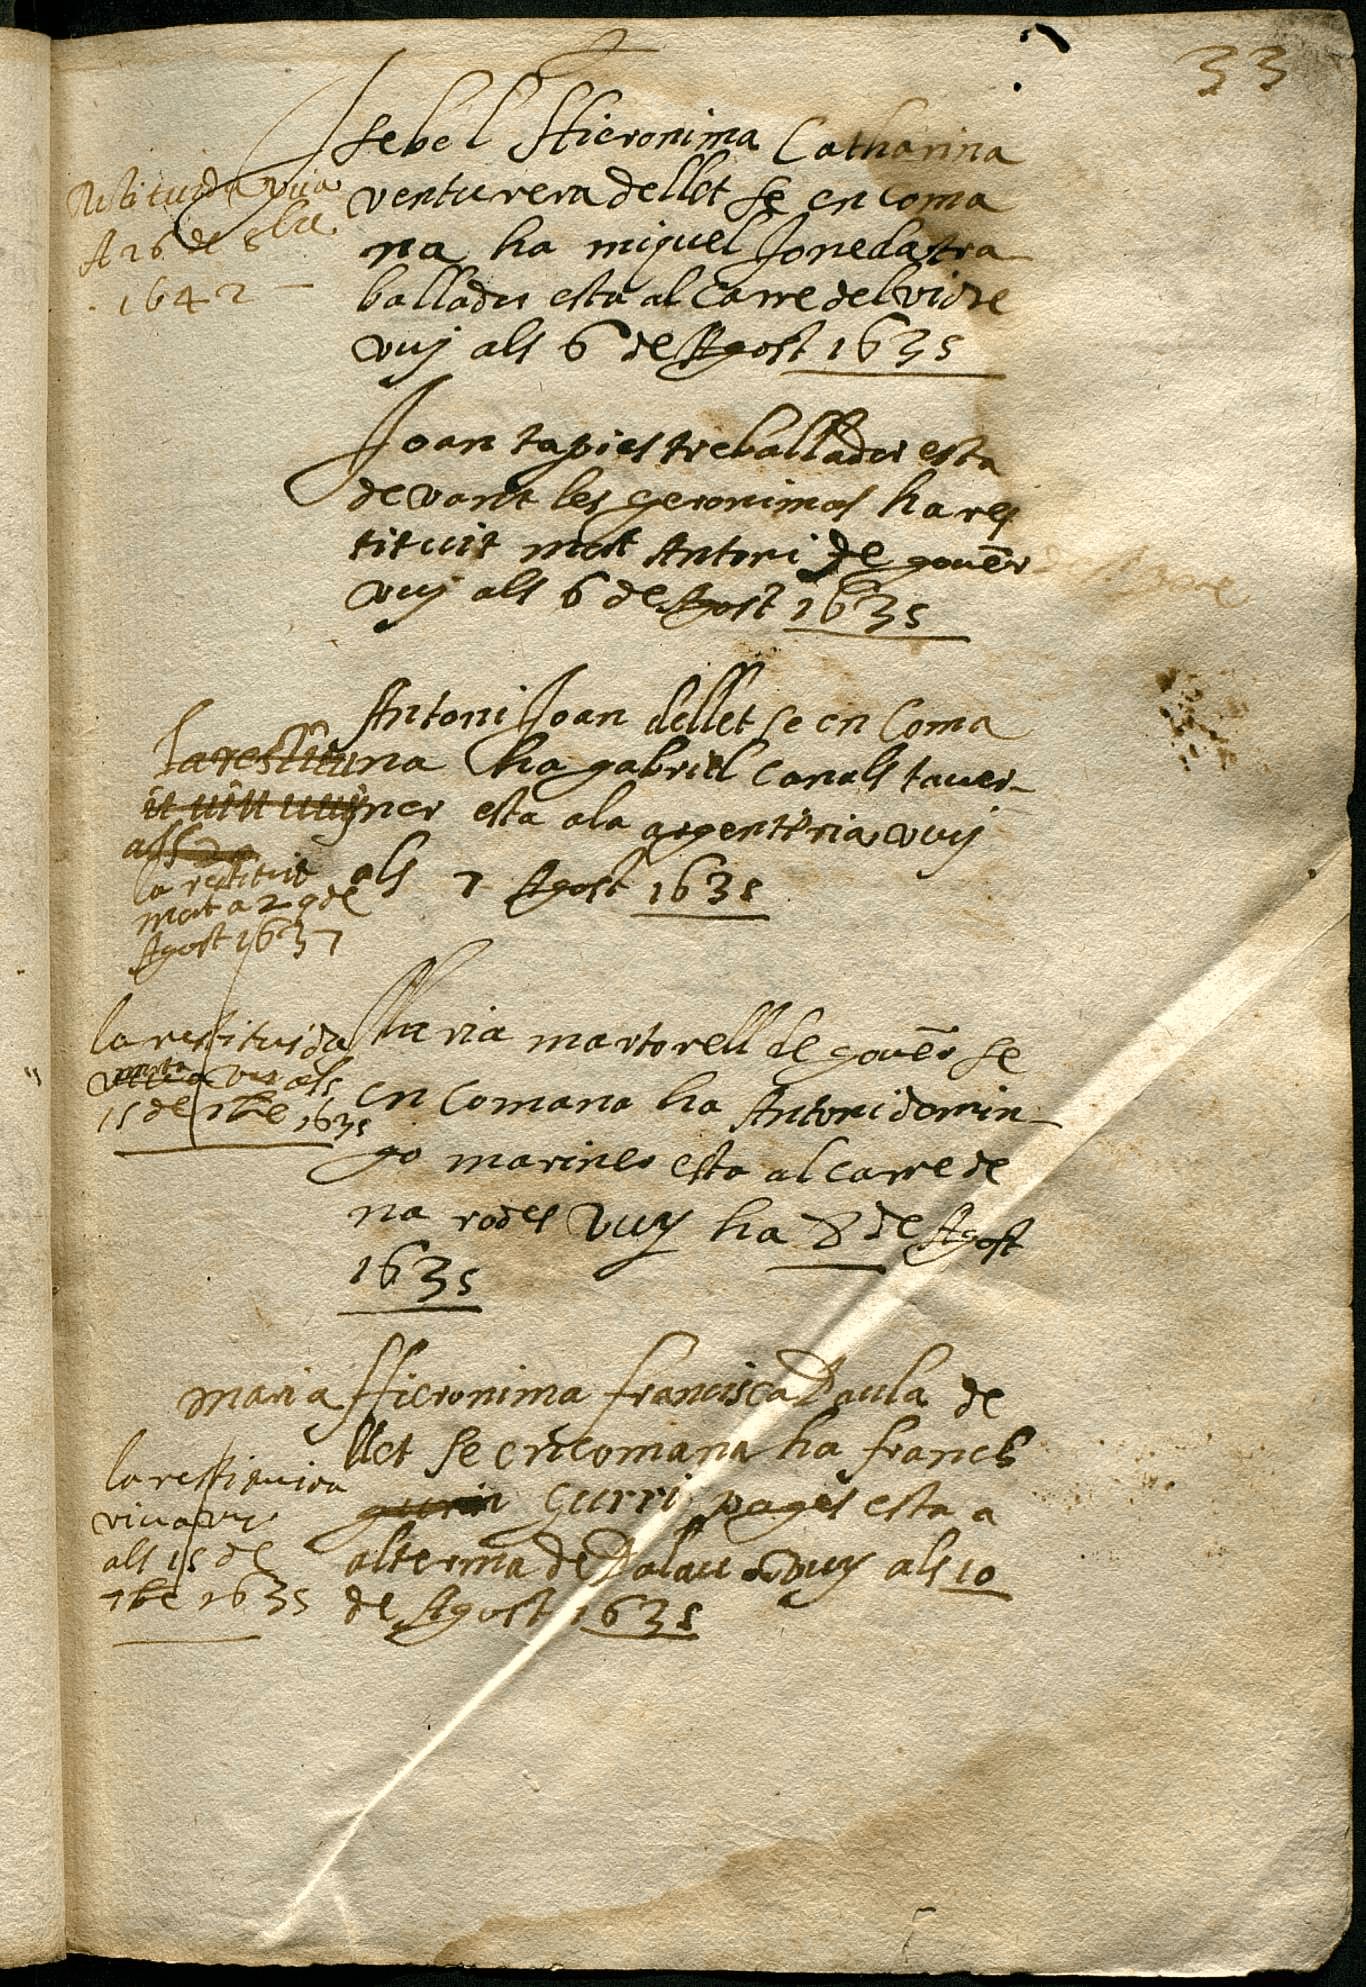 33
Isebel Hieronima Catharina
venturera de llet se encoma
na ha miquel Joneda tra
ballador esta al carre del vidre
vuy als 6 de Agost 1635
Restituida viva
A 26 de 8bre
1642
Joan tapies treballador esta
devant les geronimas ha res
tituit mort Antoni de govēr
vuy als 6 de Agost 1635
Antoni Joan de llet se encoma
na ha gabriel canals taver
ner esta a la argenteria vuy
als 7 Agost 1635
la restituit
mort a 29 de
Agost 1637
Maria martorell de govēr se
encomana ha Antoni domin
go mariner esta al carre de
na rodes vuy ha 8 de Agost
1635
la restituida
morta vuy als
15 de 7bre 1635
maria Hieronima francisca Paula de
llet se encomana ha francēs
gurri pages esta a
al terma de Palau vuy als 10
de Agost 1635
la restituida
viva vuy
als 15 de
7bre 1635